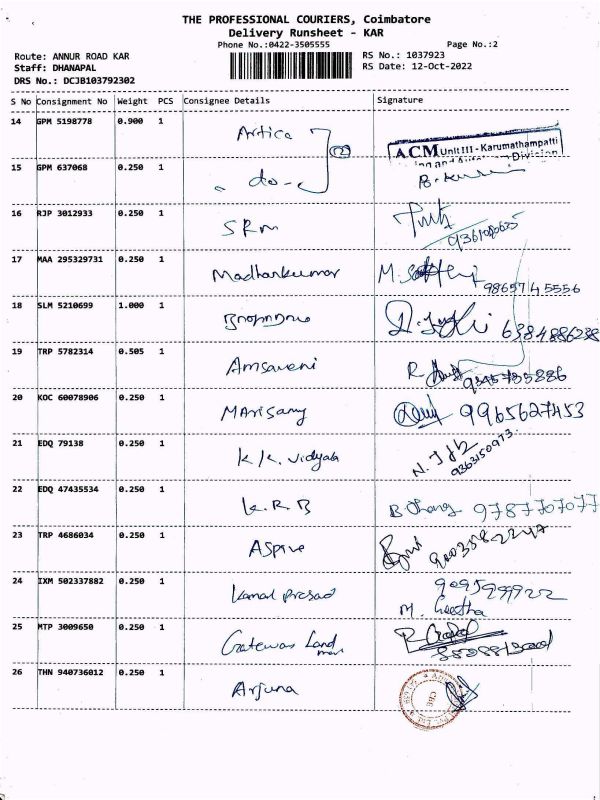 THE PROFESSIONAL COURIERS, Coimbatore
Delivery Runsheet - KAR
Phone No.:0422-3505555
Page No.:2
Route: ANNUR ROAD KAR
RS No.: 1037923
Staff: DHANAPAL
RS Date: 12-Oct-2022
DRS No.: DCJB103792302
S No Consignment No Weight PCS Consignee Details Signature
14 GPM 5198778 0.900 1 Artica (2)
ACM Unit III - Karumathampatti
Division
15 GPM 637068 0.250 1 - do -
16 RJP 3012933 0.250 1 SRM
17 MAA 295329731 0.250 1 Madhankumar M. 9865745556
18 SLM 5210699 1.000 1 6384886238
19 TRP 5782314 0.505 1 Amsaveni R
20 KOC 60078906 0.250 1 MAriSamy 9965627453
21 EDQ 79138 0.250 1 K.K. Vidyala 9363150973
22 EDQ 47435534 0.250 1 K.R.B 9787707077
23 TRP 4686034 0.250 1 Aspire
24 IXM 502337882 0.250 1 Kamal Prasad 9095999922
M. Geetha
25 MTP 3009650 0.250 1 Land
26 THN 940736012 0.250 1 Arjuna